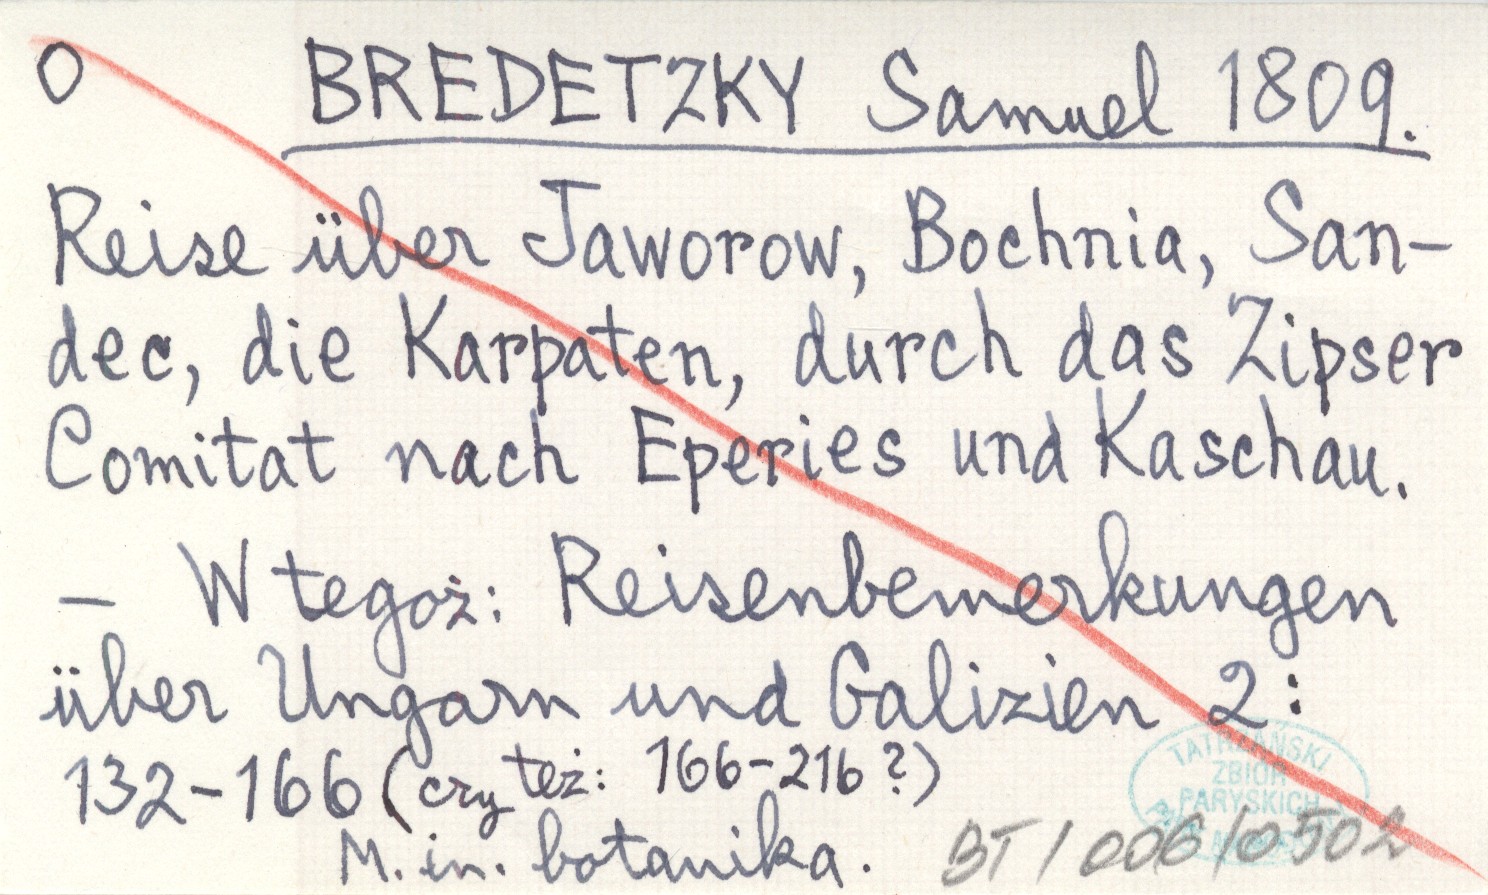 O BREDETZKY Samuel 1809.
Reise über Jaworow, Bochnia, San-
dec, die Karpaten, durch das Zipser
Comitat nach Eperies und Kaschau.
— W tegoż: Reisenbemerkungen
über Ungarn und Galizien 2:
132-166 (czy też: 166-216?)
M. in. botanika.
TATRZAŃSKI
ZBIÓR
PARYSKICH
BT/006/0502